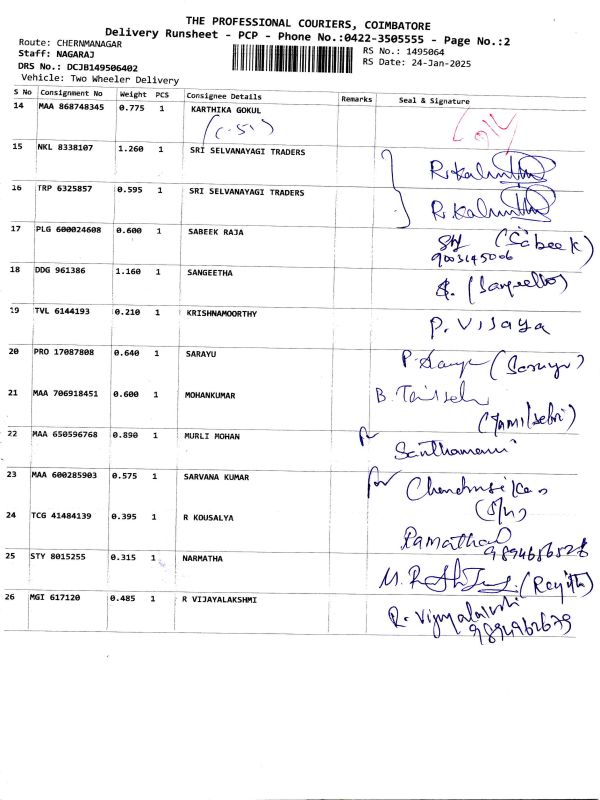 THE PROFESSIONAL COURIERS, COIMBATORE
Delivery Runsheet - PCP - Phone No.:0422-3505555 - Page No.:2
Route: CHERNMANAGAR
Staff: NAGARAJ
RS No.: 1495064
DRS No.: DCJB149506402
RS Date: 24-Jan-2025
Vehicle: Two Wheeler Delivery
S No Consignment No Weight PCS Consignee Details Remarks Seal & Signature
14 MAA 868748345 0.775 1 KARTHIKA GOKUL
(C-51)
15 NKL 8338107 1.260 1 SRI SELVANAYAGI TRADERS
16 TRP 6325857 0.595 1 SRI SELVANAYAGI TRADERS
17 PLG 600024608 0.600 1 SABEEK RAJA (Sabeek)
9003145006
18 DDG 961386 1.160 1 SANGEETHA
19 TVL 6144193 0.210 1 KRISHNAMOORTHY P. VIJAYA
20 PRO 17087808 0.640 1 SARAYU
21 MAA 706918451 0.600 1 MOHANKUMAR
22 MAA 650596768 0.890 1 MURLI MOHAN for Santhamani
23 MAA 600285903 0.575 1 SARVANA KUMAR for
24 TCG 41484139 0.395 1 R KOUSALYA Ramathal
25 STY 8015255 0.315 1 NARMATHA
26 MGI 617120 0.485 1 R VIJAYALAKSHMI R. Vijayalakshmi
9894962679